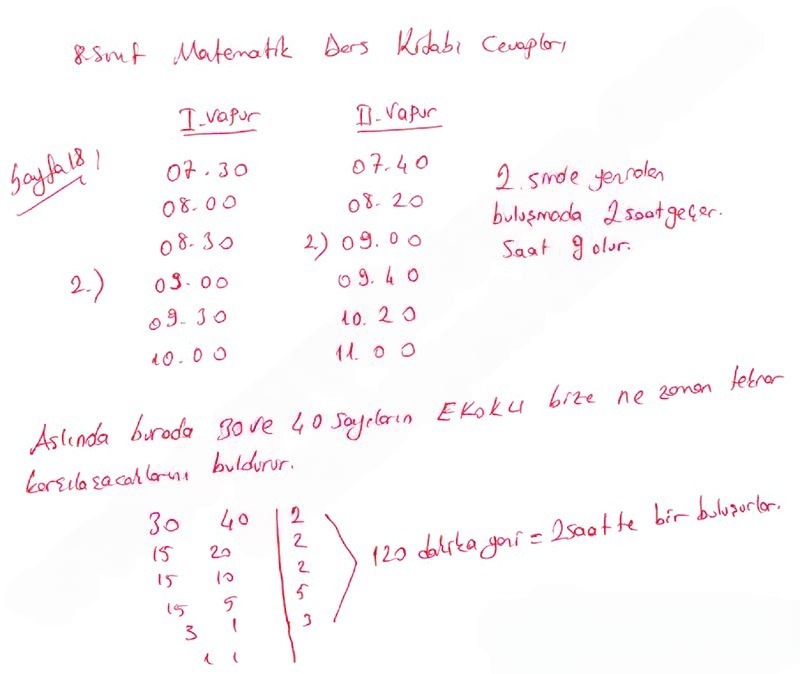 8.Sınıf Matematik Ders Kitabı Cevapları
I.Vapur II.Vapur
Sayfa 18
07.30 07.40
08.00 08.20
08.30 2.) 09.00
2.) 09.00 09.40
09.30 10.20
10.00 11.00
2.sinde yeniden
buluşmada 2 saat geçer.
Saat 9 olur.
Aslında burada 30 ve 40 sayıların EKOKU bize ne zaman tekrar
karşılaşacaklarını buldurur.
30 40 | 2
15 20 | 2
15 10 | 2
15 5 | 5
3 1 | 3
1 1
120 dakika yani = 2 saatte bir buluşurlar.